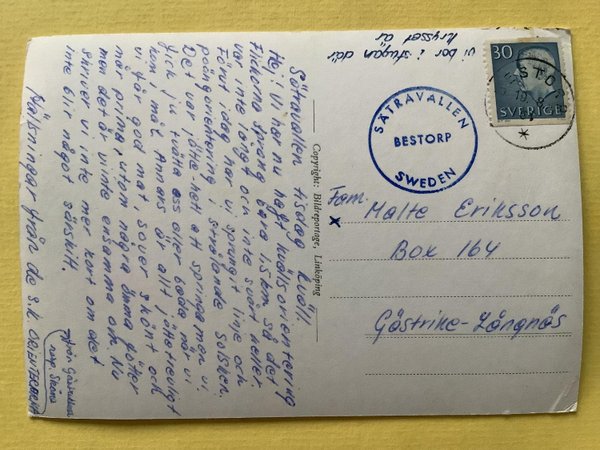 Sätravallen tisdag kväll.
Hej! Vi har nu haft kvällsorientering
Flickorna sprang bara 1,5 km så det
var inte långt och inte svårt heller
Förut idag har vi sprungit line och
poängorientering i strålande solsken.
Det var jätte-hett att springa men vi
fick ju tvätta oss eller bada när vi
kom i mål. Annars är allt jättetrevligt
vi får god mat, sover skönt och
mår prima, utom några ömma fötter
men det är vi inte ensamma om. Nu
skriver vi inte mer kort om det
inte blir något särskilt.
Hälsningar från de s.k. ORIENTERARNA
från Gästrikland
resp. Skåne
Copyright: Bildreportage, Linköping
vi bor i stugan där
krysset är
30
SVERIGE
SÄTRAVALLEN
BESTORP
SWEDEN
Fam.
x Malte Eriksson
Box 164
Gästrike-Långnäs